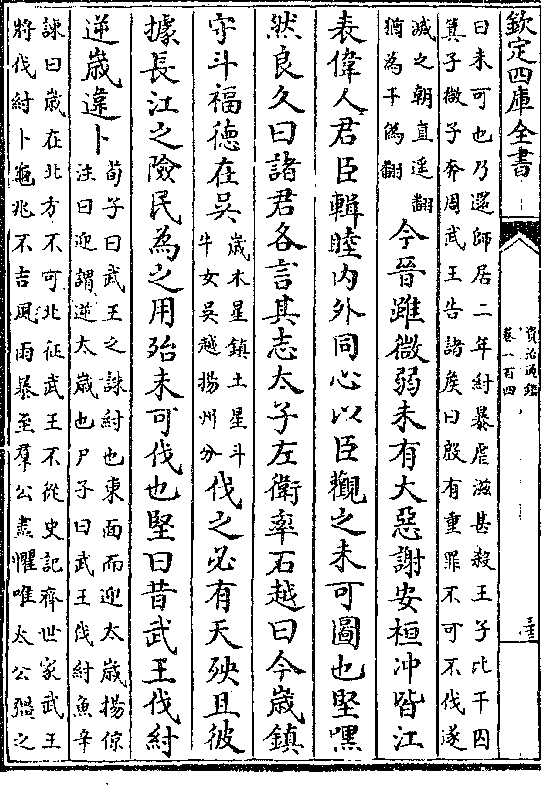 欽定四庫全書
資治通鑑
卷一百四
曰未可也乃還師居二年紂暴虐滋甚殺王子比干囚
箕子微子奔周武王告諸侯曰殷有重罪不可不伐遂
滅之朝直遥翻
猶為于偽翻
今晉雖微弱未有大惡謝安桓冲皆江
表偉人君臣輯睦内外同心以臣觀之未可圖也堅嘿
然良久曰諸君各言其志太子左衛率石越曰今歲鎮
守斗福德在吳
歲木星鎮土星斗
牛女吳越揚州分
伐之必有天殃且彼
據長江之險民為之用殆未可伐也堅曰昔武王伐紂
逆歲違卜
荀子曰武王之誅紂也東面而迎太歲楊倞
注曰迎謂逆太歲也尸子曰武王伐紂魚辛
諫曰歲在北方不可北征武王不從史記齊世家武王
將伐紂卜龜兆不吉風雨暴至羣公盡懼唯太公彊之